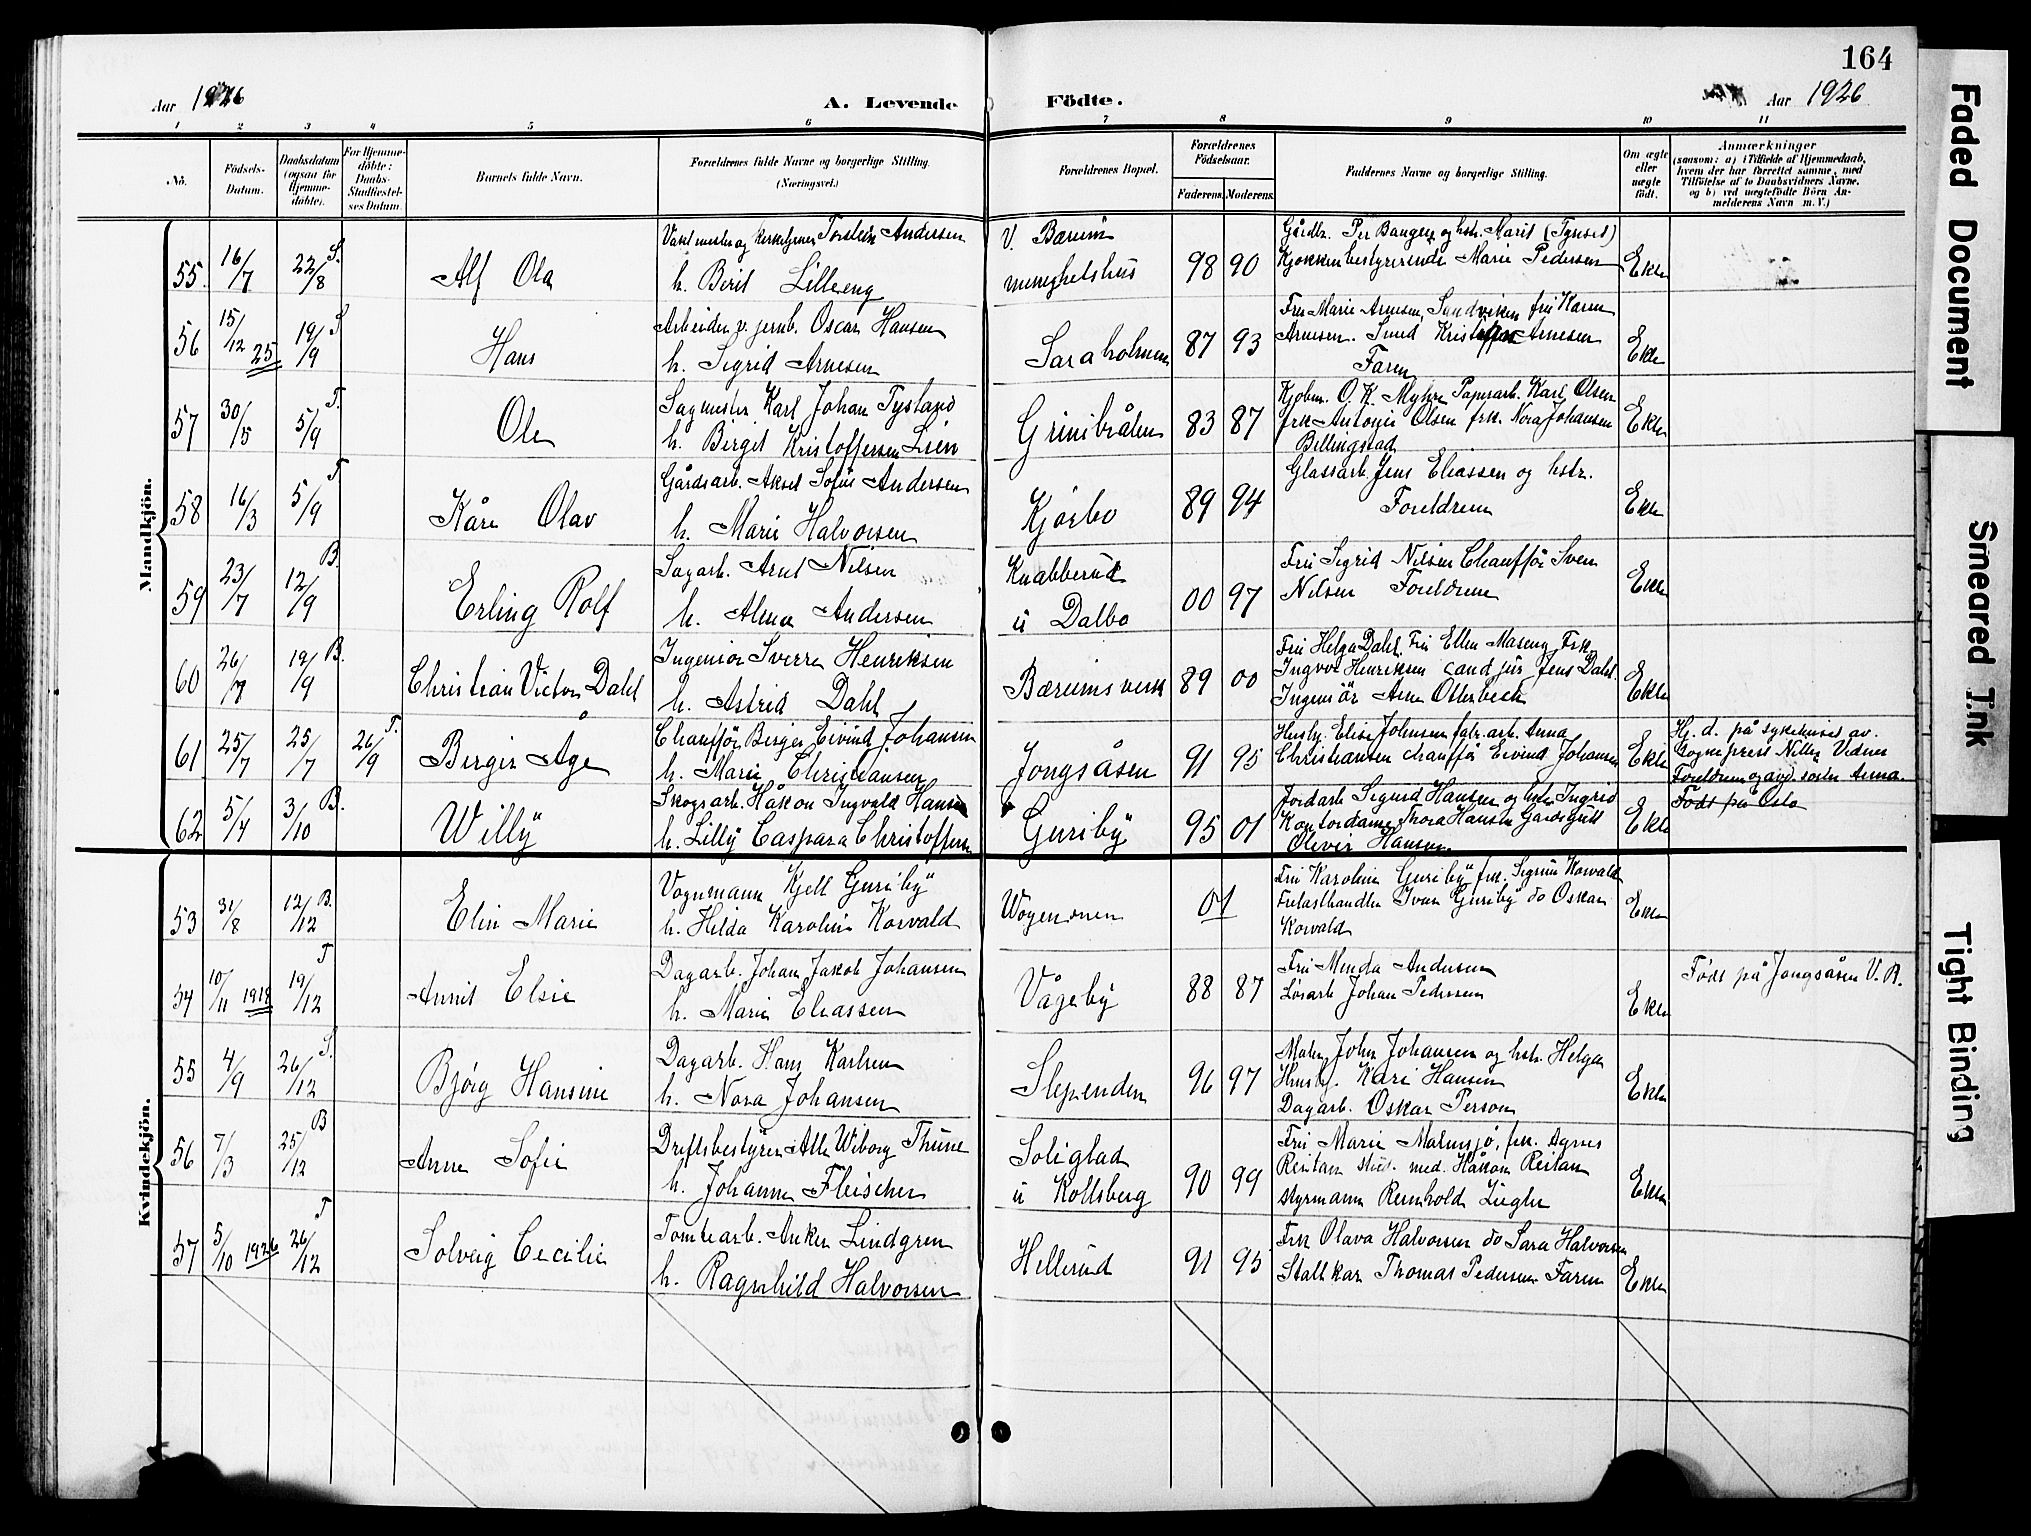 164
Aar 1926 A. Levende Födte. Aar 1926
1 2 3 4 5 6 7 8 9 10 11
No.
Födsels-Datum.
Daabsdatum (ogsaa for Hjemmedöbte).
For Hjemmedöbte: Daabs-Stadfæstelses Datum.
Barnets fulde Navn.
Forældrenes fulde Navne og borgerlige Stilling.
(Næringsvei.)
Forældrenes Bopæl.
Forældrenes Födselsaar.
Faderens. Moderens.
Faddernes Navne og borgerlige Stilling.
Om ægte eller uægte födt.
Anmærkninger
(saasom: a) i Tilfælde af Hjemmedaab,
hvem der har forrettet samme, med
Tilföielse af to Daabsvidners Navne,
og b) ved uægtefödte Börn An-
melderens Navn m. V.)
Mandkjön.
55 16/7 22/8 S. Alf Ola
Vaktmester og kirketjener Torstein Andersen
h. Berit Lilleeng
V. Bærum
menighetshus
98 90
Gårdbr. Per Bangen og hstr. Marit (Tynset)
Kjøkkenbestyrerinde Marie Pedersen
Ekte
56 15/12 25 19/9 S Hans
Arbeider v. jernb. Oscar Hansen
h. Sigrid Arnesen
Saraholmen
87 93
Fru Marie Arnesen, Sandviken fru Karen
Arnesen. Smed Kristoffer Arnesen
Faren
Ekte
57 30/5 5/9 T. Ole
Sagmester Karl Johan Tysland
h. Birgit Kristoffersen Lien
Grinibråten
83 87
Kjøbm. O. K. Myhre Papirarb. Karl Olsen
frk Antonie Olsen frk. Nora Johansen
Billingstad
Ekte
58 16/3 5/9 T Kåre Olav
Gårdsarb. Aksel Sofus Andersen
h. Marie Halvorsen
Kjørbo
89 94
Glassarb. Jens Eliassen og hstr.
Foreldrene
Ekte
59 23/7 12/9 B. Erling Rolf
Sagarb. Arnt Nilsen
h. Alma Andersen
Knabberud
u Dalbo
00 97
Fru Sigrid Nilsen Chauffør Sven
Nilsen Foreldrene
Ekte
60 26/7 19/9 B. Christian Victor Dahl
Ingeniør Sverre Henriksen
h. Astrid Dahl
Bærumsverk
89 00
Fru Helga Dahl, Fru Ellen Maseng, Frk
Ingvor Henriksen cand jur Jens Dahl
Ingeniør Arne Otterbeck
Ekte
61 25/7 25/7 26/9 T. Birger Åge
Chauffør Birger Eivind Johansen
h. Marie Christiansen
Jongsåsen
91 95
Husby. Elise Johnsen fabr. arb. Anna
Christiansen chauffør Eivind Johansen
Ekte
Hj. d. på sykehuset av.
Sogneprest Vidner
Foreldrene og avd. søster Anna.
62 5/4 3/10 B. Willy
Skogsarb. Håkon Ingvald Hansen
h. Lilly Caspara Christoffersen
Guriby
95 01
Jordarb Sigurd Hansen og hstr Ingrid
Kontordame Thora Hansen Gårdsgutt
Oliver Hansen
Ekte
Født på Oslo
Kvindekjön.
53 31/8 12/12 B. Elin Marie
Vognmann Kjell Guriby
h. Hilda Karoline Korvald
01
Fru Karoline Guriby frk. Sigrun Korvald
Ivar Guriby do Oskar
Korvald
Ekte
54 10/11 1918 19/12 T Annie Elsie
Dagarb. Johan Jakob Johansen
h. Marie Eliassen
Vågeby
88 87
Fru Menda Andersen
Løsarb Johan Pedersen
Ekte
Født på Jongsåsen V. B.
55 4/9 26/12 S. Bjørg Hansine
Dagarb. Hans Karlsen
h. Nora Johansen
Slependen
96 97
Maler John Johansen og hstr. Helga
Husby. Kari Hansen
Dagarb. Oskar Person
Ekte
56 7/3 25/12 B Anne Sofie
Driftsbestyrer Atle Wiborg Thune
h. Johanne Fleischer
Soliglad
u Kolsberg
90 99
Fru Marie Malmsjø, frk. Agnes
Reitan stud. med. Håkon Reitan
styrmann Reinhold Ziegler
Ekte
57 5/10 1926 26/12 T Solveig Cecilie
Tomtearb. Anker Lindgren
h. Ragnhild Halvorsen
Hellerud
91 95
Frk Olava Halvorsen do Sara Halvorsen
Stallkar Thomas Pedersen Faren
Ekte
Faded Document
Smeared Ink
Tight Binding